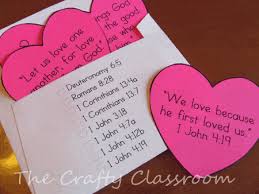 "Let us love one
another, for love
God
the good
those
Deuteronomy 6:5
Romans 8:28
1 Corinthians 13:4a
1 Corinthians 13:7
1 John 3:18
1 John 4:7a
1 John 4:12b
1 John 4:19
"We love because
he first loved us."
1 John 4:19
The Crafty Classroom